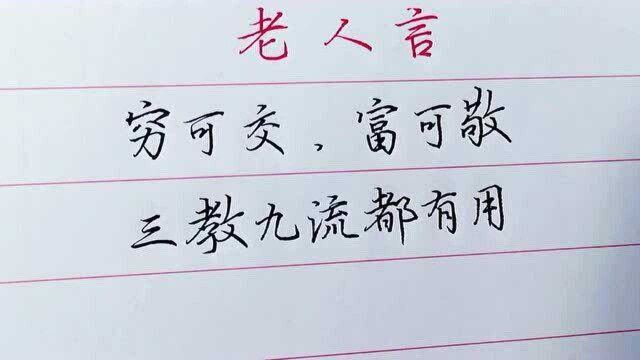 老人言
穷可交，富可敬
三教九流都有用